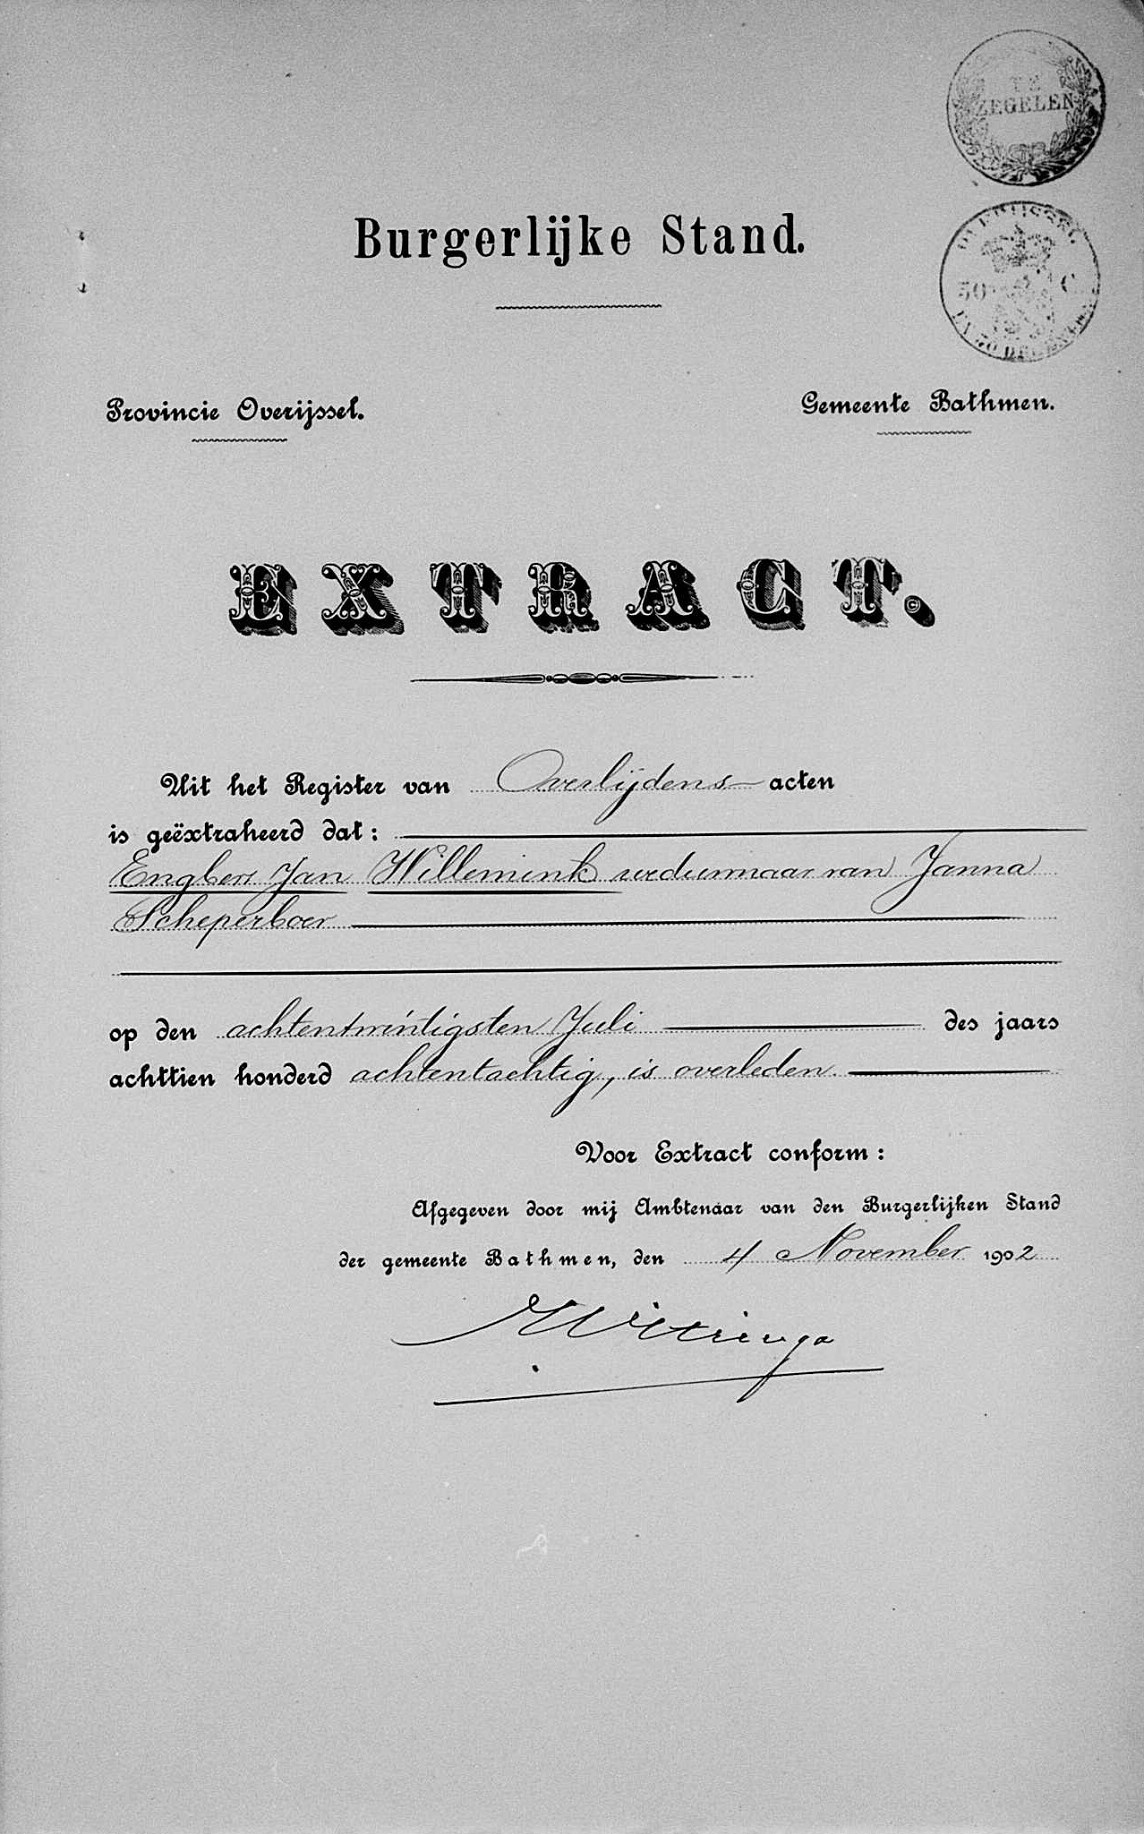 ZEGELEN
Burgerlijke Stand.
OVERIJSSEL
50 C
EN 38 OPCENTEN
Provincie Overijssel.
Gemeente Bathmen.
EXTRACT.
Uit het Register van Overlijdens acten
is geëxtraheerd dat:
Engbert Jan Willemink weduwnaar van Janna
Scheperboer
op den achtentwintigsten Juli des jaars
achttien honderd achtentachtig, is overleden.
Voor Extract conform:
Afgegeven door mij Ambtenaar van den Burgerlijken Stand
der gemeente Bathmen, den 4 November 1902